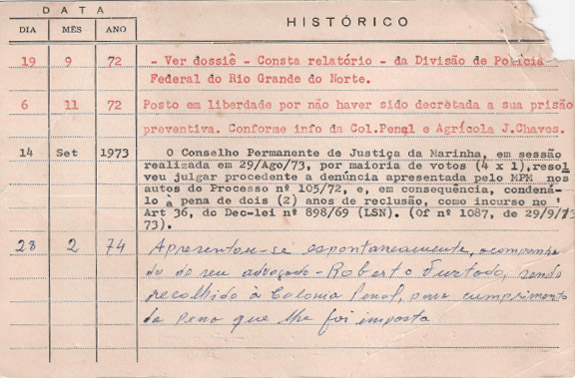 DATA
HISTÓRICO
DIA MÊS ANO
19 9 72 - Ver dossiê - Consta relatório - da Divisão de Polícia
Federal do Rio Grande do Norte.
6 11 72 Posto em liberdade por não haver sido decretada a sua prisão
preventiva. Conforme info da Col.Penal e Agrícola J.Chaves.
14 Set 1973 O Conselho Permanente de Justiça da Marinha, em sessão
realizada em 29/Ago/73, por maioria de votos (4 x 1),resol
veu julgar procedente a denúncia apresentada pelo MPM nos
autos do Processo nº 105/72, e, em consequência, condená-
lo à pena de dois (2) anos de reclusão, como incurso no '
Art 36, do Dec-lei nº 898/69 (LSN). (Of nº 1087, de 29/9/73
73).
28 2 74 Apresentou-se espontaneamente, acompanha
do de seu advogado - Roberto Furtado, sendo
recolhido à Colonia Penal, para cumprimento
da pena que lhe foi imposta